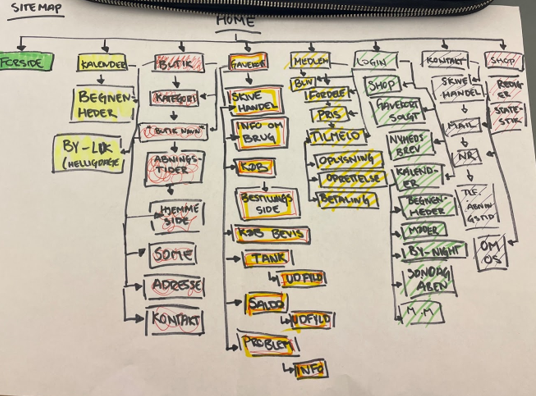 SITEMAP
HOME
FORSIDE
KALENDER
BEGIVEN-
HEDER
BUTIK
KATEGORI
BUTIK NAVN
ÅBNINGS-
TIDER
HJEMME
SIDE
SOME
ADRESSE
KONTAKT
GAVEKORT
SKIVE
HANDEL
INFO OM
BRUG
KØB
BESTILLINGS
SIDE
KØB BEVIS
TANK
UDFYLD
SALDO
UDFYLD
PROBLEM
INFO
MEDLEM
BLIV
FORDELE
PRIS
TILMELD
OPLYSNING
OPRETTELSE
BETALING
LOGIN
SHOP
GAVEKORT
SOLGT
NYHEDS
BREV
KALEND-
ER
BEGIVEN-
HEDER
MØDER
BY-NIGHT
SØNDAG
ÅBEN
M.M
KONTAKT
SKIVE
HANDEL
MAIL
NR.
TLF.
ÅBNING
STID
OM
OS
SHOP
STATI-
STIK